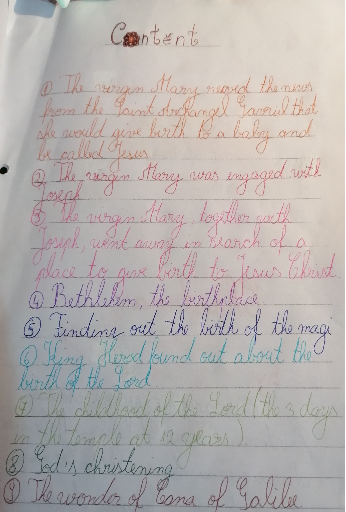 Content
① The virgin Mary receivd the news
from the Saint Archangel Gavriil that
she would give birth to a baby and
be called Jesus
② The virgin Mary was ingaged with
Joseph
③ The virgin Mary, together with
Joseph, went away in search of a
place to give birth to Jesus Christ.
④ Bethlehem, the birthplace
⑤ Finding out the birth of the magi
⑥ King Herod found out about the
birth of the Lord
⑦ The childhood of the Lord (the 3 days
in the temple at 12 years).
⑧ God's christening
⑨ The wonder of Cana of Galilee